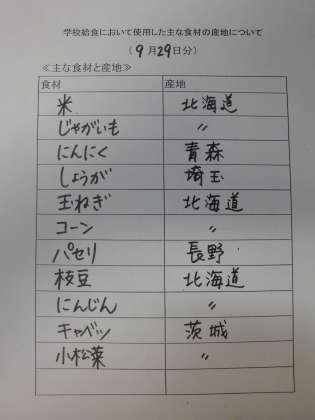 学校給食において使用した主な食材の産地について
(9月29日分)
≪主な食材と産地≫
食材 産地
米 北海道
じゃがいも 〃
にんにく 青森
しょうが 埼玉
玉ねぎ 北海道
コーン 〃
パセリ 長野
枝豆 北海道
にんじん 〃
キャベツ 茨城
小松菜 〃